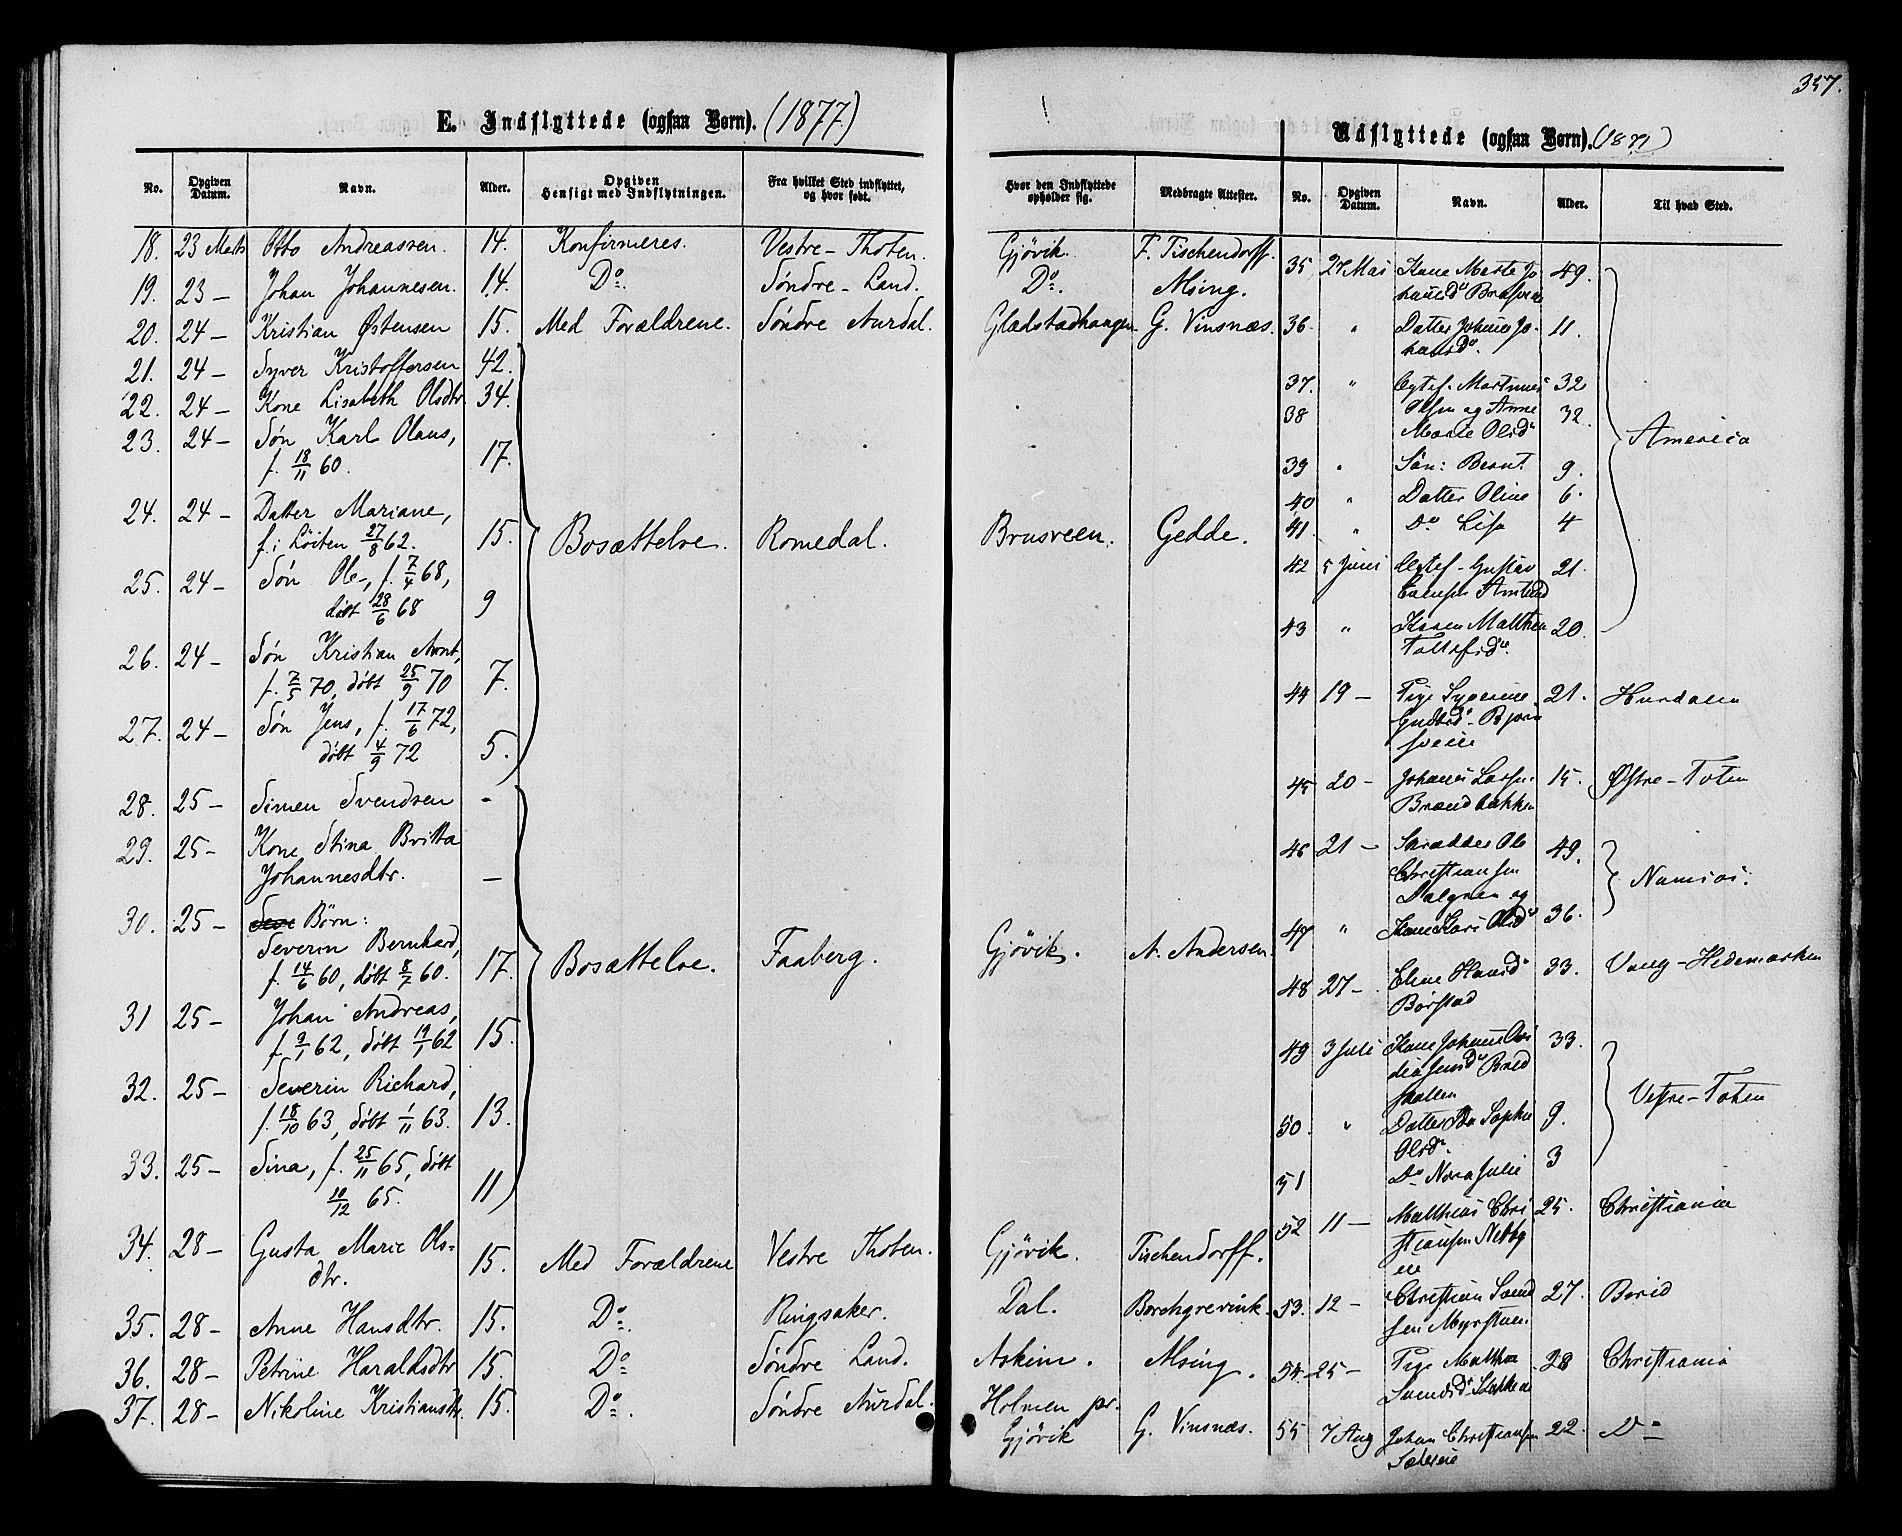 357.
E. Indflyttede (ogsaa Børn). (1877)
No. Opgiven Datum. Navn. Alder. Opgiven Hensigt med Indflytningen. Fra hvilket Sted indflyttet, og hvor født. Hvor den Indflyttede opholder sig. Medbragte Attester.
18. 23 Marts Otto Andreassen. 14. Konfirmeres. Vestre-Thoten. Gjövik. F. Tischendorff.
19. 23 – Johan Johannesen. 14. Do. Søndre-Land. Do. Msing.
20. 24 – Kristian Østensen 15. Med Forældrene. Søndre Aurdal. Glædstadhaugen G. Vinsnæs.
21. 24 – Syver Kristoffersen 42.
22. 24 – Kone Lisabeth Olsdtr. 34.
23. 24 – Søn Karl Olaus,
f. 18/11 60. 17.
24. 24 – Datter Mariane,
f. i Löiten 27/8 62. 15. Bosættelse. Romedal. Brusveen. Gedde.
25. 24 – Søn Ole, f. 7/4 68,
døbt 28/6 68 9
26. 24 – Søn Kristian Arnt,
f. 7/5 70, døbt 25/9 70 7.
27. 24 – Søn Jens, f. 17/6 72,
døbt 4/9 72 5.
28. 25 – Simen Svendsen -
29. 25 – Kone Stina Britta
Johannesdtr. –
30. 25 – Børn:
Severin Bernhard,
f. 14/6 60, døbt 8/7 60. 17. Bosættelse. Faaberg. Gjövik. A. Andersen.
31 25 – Johan Andreas,
f. 9/1 62, døbt 19/1 62 15.
32. 25 – Severin Richard,
f. 18/10 63, døbt 1/11 63. 13.
33. 25 – Sina, f. 25/11 65, døbt
10/12 65. 11
34. 28 – Gusta Marie Ols-
dtr. 15. Med Forældrene Vestre Thoten. Gjövik. Tischendorff.
35. 28 – Anne Hansdtr. 15. Do. Ringsaker. Dal. Borchgrevink.
36. 28 – Petrine Haraldsdtr 15. Do Søndre Land. Askim. Msing.
37. 28 – Nikoline Kristiansdtr. 15. Do. Søndre Aurdal. Holmen pr.
Gjövik G. Vinsnæs.
Udflyttede (ogsaa Børn). (1877)
No. Opgiven Datum. Navn. Alder. Til hvad Sted.
35 27 Mai Kone Marte Jo
hansdr 49.
36. " Datter Johanne Jo-
hansdr. 11.
37. " Ægtef. Martinus 32
38 Olsen og Anne
Marte Olsdr 32.
America
39 " Søn: Bernt. 9.
40 " Datter Oline 6.
41. " Do Lisa 4
42 5 Juni Ægtef. Gustav
21.
43 " Karen Mathea
20.
44 19 – Pige
21. Hurdalen
45 20 – Johannes Larsen
Brændbakken 15. Østre-Toten
46 21 – Skrædder Ole
Christiansen
Dalgren og 49.
Namsos.
47 " Kone Kari Olsdr 36.
48 27 – Eline Hansdr
Børstad 33. Vang-Hedemarken
49 3 Juli Kone Johanne
33.
Vestre-Toten
50. " Datter Ida Sophie
Olsdr. 9.
51 Do Nora Julie 3
52 11 – Matthias Chri
stiansen 25. Christiania
53. 12 – Christian
27. Biri
54 25 – Pige Mathea
28 Christiania
55 7 Aug Johan Christiansen
22. Do